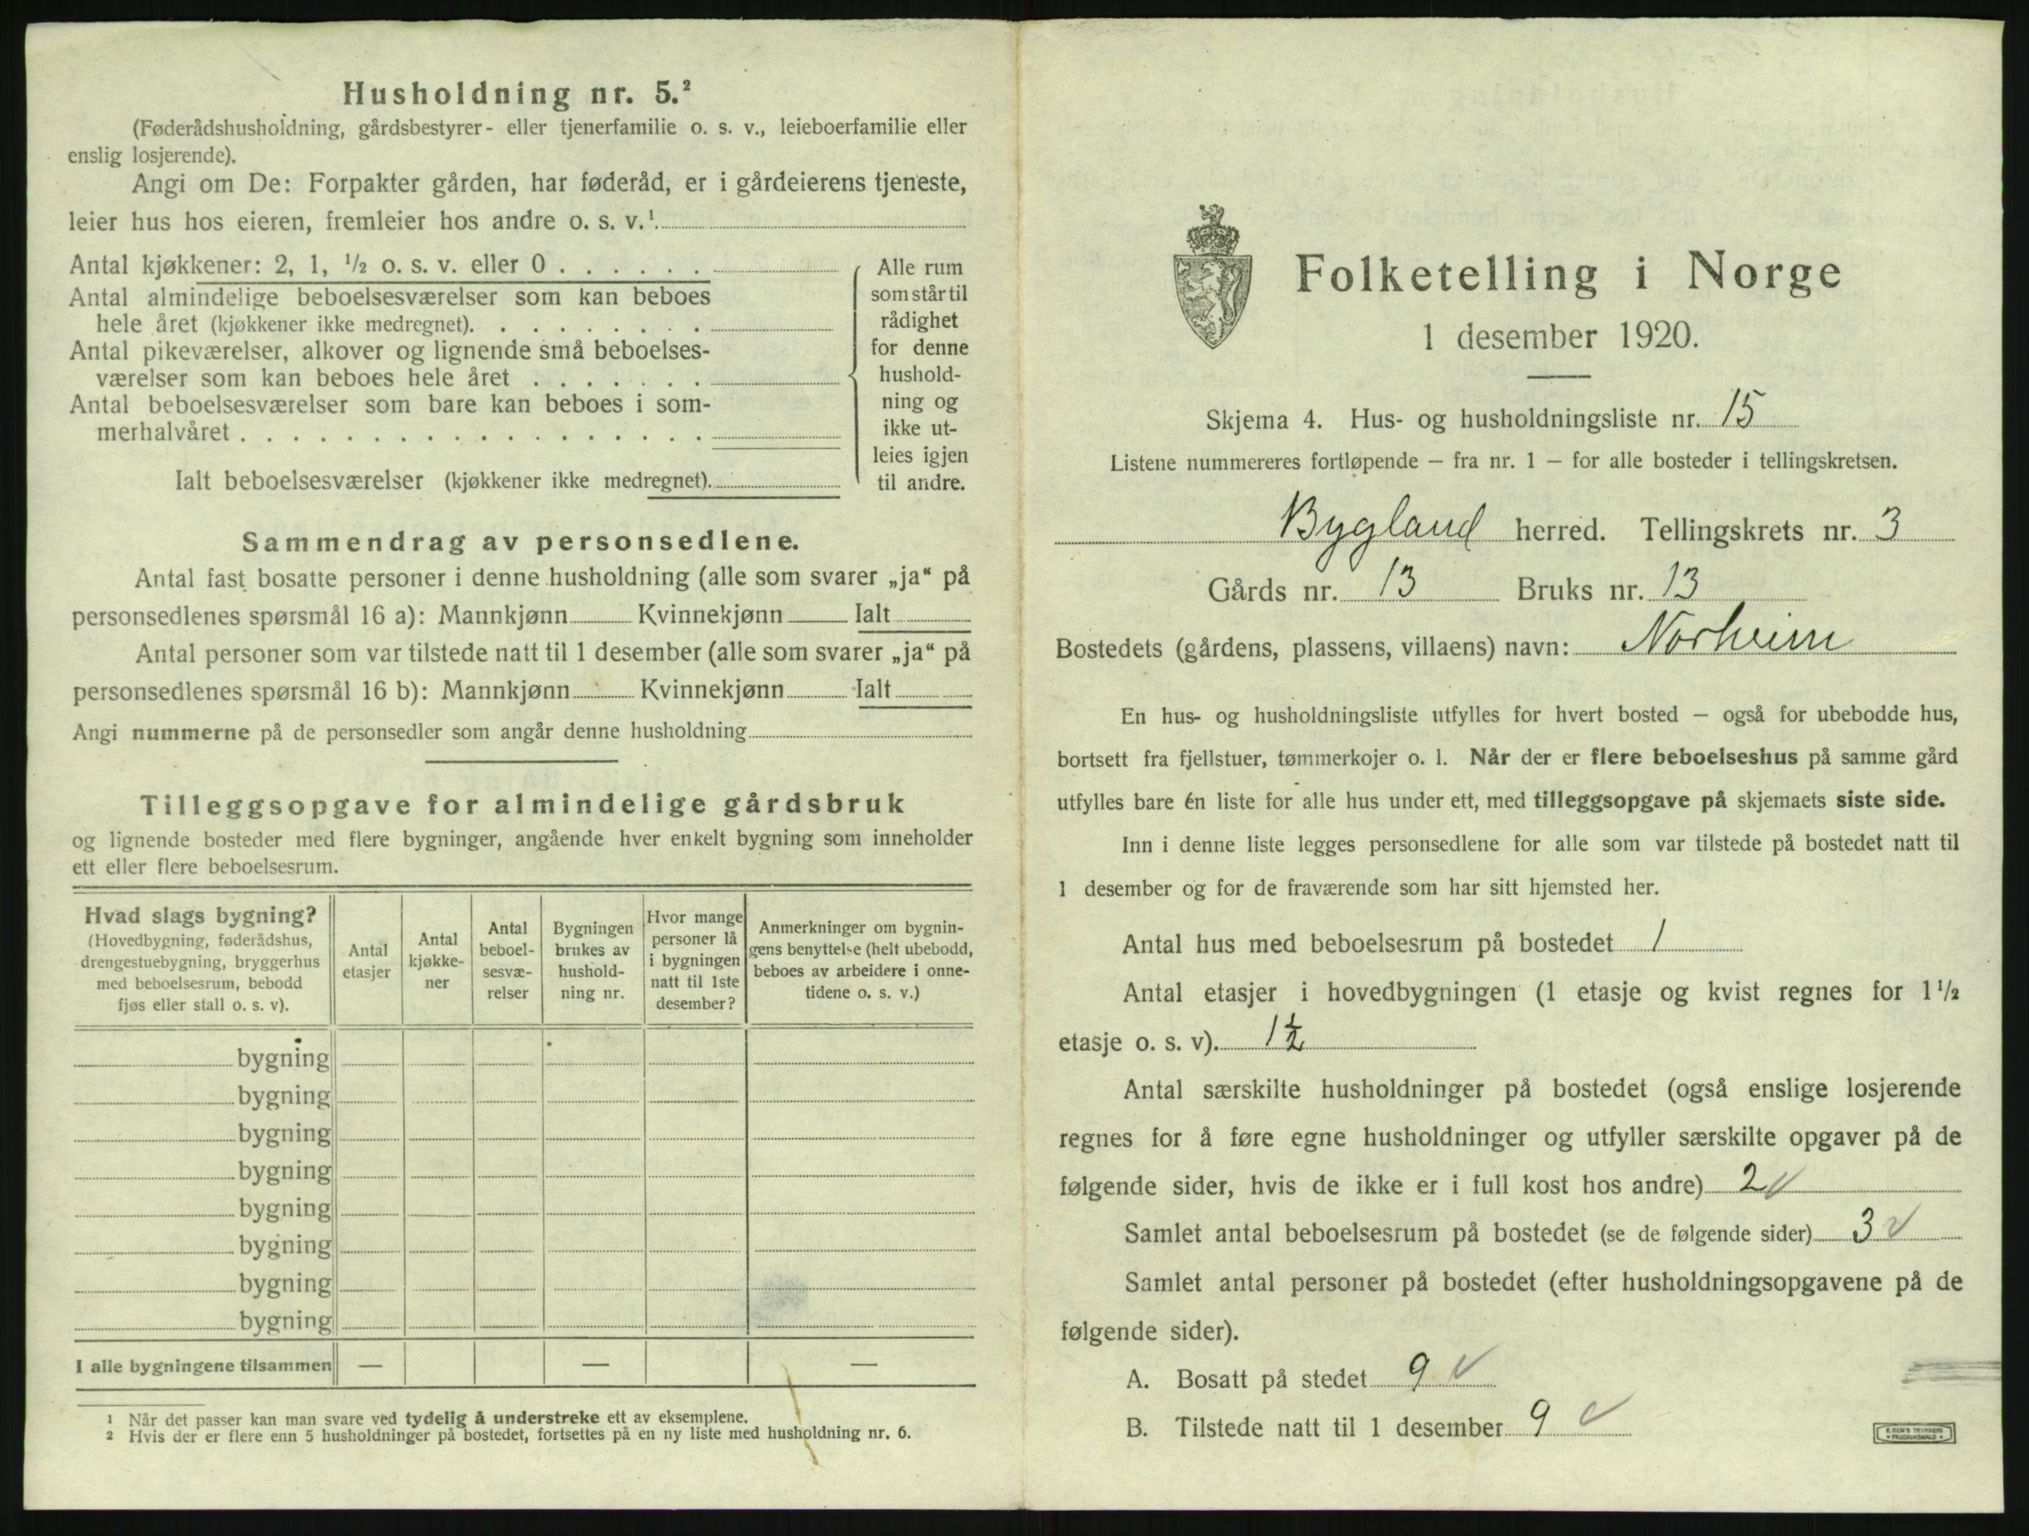 Husholdning nr. 5.²
(Føderådshusholdning, gårdsbestyrer- eller tjenerfamilie o. s. v., leieboerfamilie eller
enslig losjerende).
Angi om De: Forpakter gården, har føderåd, er i gårdeierens tjeneste,
leier hus hos eieren, fremleier hos andre o. s. v.¹
Antal kjøkkener: 2, 1, ½ o. s. v. eller 0 . . . . . .
Antal almindelige beboelsesværelser som kan beboes
hele året (kjøkkener ikke medregnet). . . . . . . . .
Antal pikeværelser, alkover og lignende små beboelses-
værelser som kan beboes hele året . . . . . . .
Antal beboelsesværelser som bare kan beboes i som-
merhalvåret . . . . . . . . . . . . . . . . . .
Ialt beboelsesværelser (kjøkkener ikke medregnet).
Alle rum
som står til
rådighet
for denne
hushold-
ning og
ikke ut-
leies igjen
til andre.
Sammendrag av personsedlene.
Antal fast bosatte personer i denne husholdning (alle som svarer „ja“ på
personsedlenes spørsmål 16 a): Mannkjønn Kvinnekjønn Ialt
Antal personer som var tilstede natt til 1 desember (alle som svarer „ja“ på
personsedlenes spørsmål 16 b): Mannkjønn Kvinnekjønn Ialt
Angi nummerne på de personsedler som angår denne husholdning
Tilleggsopgave for almindelige gårdsbruk
og lignende bosteder med flere bygninger, angående hver enkelt bygning som inneholder
ett eller flere beboelsesrum.
Hvad slags bygning?
(Hovedbygning, føderådshus,
drengestuebygning, bryggerhus
med beboelsesrum, bebodd
fjøs eller stall o. s. v).
Antal
etasjer
Antal
kjøkke-
ner
Antal
beboel-
sesvæ-
relser
Bygningen
brukes av
hushold-
ning nr.
Hvor mange
personer lå
i bygningen
natt til 1ste
desember?
Anmerkninger om bygnin-
gens benyttelse (helt ubebodd,
beboes av arbeidere i onne-
tidene o. s. v.)
bygning
bygning
bygning
bygning
bygning
bygning
bygning
bygning
I alle bygningene tilsammen — — —
¹ Når det passer kan man svare ved tydelig å understreke ett av eksemplene.
² Hvis der er flere enn 5 husholdninger på bostedet, fortsettes på en ny liste med husholdning nr. 6.
Folketelling i Norge
1 desember 1920.
Skjema 4. Hus- og husholdningsliste nr. 15
Listene nummereres fortløpende – fra nr. 1 – for alle bosteder i tellingskretsen.
Bygland herred. Tellingskrets nr. 3
Gårds nr. 13 Bruks nr. 13
Bostedets (gårdens, plassens, villaens) navn: Norheim
En hus- og husholdningsliste utfylles for hvert bosted – også for ubebodde hus,
bortsett fra fjellstuer, tømmerkojer o. l. Når der er flere beboelseshus på samme gård
utfylles bare én liste for alle hus under ett, med tilleggsopgave på skjemaets siste side.
Inn i denne liste legges personsedlene for alle som var tilstede på bostedet natt til
1 desember og for de fraværende som har sitt hjemsted her.
Antal hus med beboelsesrum på bostedet 1
Antal etasjer i hovedbygningen (1 etasje og kvist regnes for 1½
etasje o. s. v). 1½
Antal særskilte husholdninger på bostedet (også enslige losjerende
regnes for å føre egne husholdninger og utfyller særskilte opgaver på de
følgende sider, hvis de ikke er i full kost hos andre) 2 ✓
Samlet antal beboelsesrum på bostedet (se de følgende sider) 3 ✓
Samlet antal personer på bostedet (efter husholdningsopgavene på de
følgende sider).
A. Bosatt på stedet 9 ✓
B. Tilstede natt til 1 desember 9 ✓